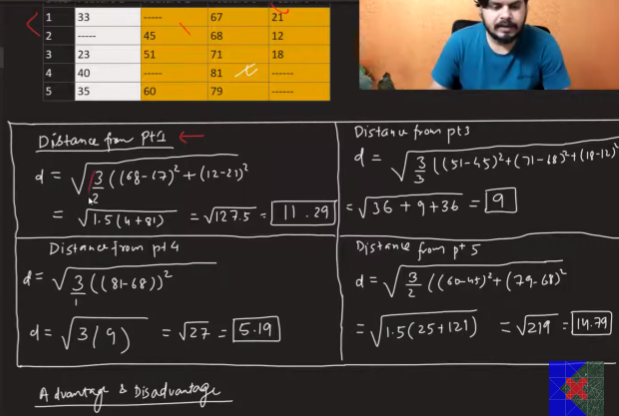 1 33 ----- 67 21
2 ----- 45 68 12
3 23 51 71 18
4 40 ----- 81 ------
5 35 60 79 ------
Distance from pt1 ←
d = √3/2 ((68-67)² + (12-21)²
= √1.5(4+81) = √127.5 = 11.29
Distance from pt3
d = √3/3 ((51-45)² + (71-68)² + (18-12)²
= √36 + 9 + 36 = 9
Distance from pt4
d = √3/1 ((81-68))²
d = √3(9) = √27 = 5.19
Distance from pt 5
d = √3/2 ((60-45)² + (79-68)²
= √1.5(25+121) = √219 = 14.79
Advantage & Disadvantage